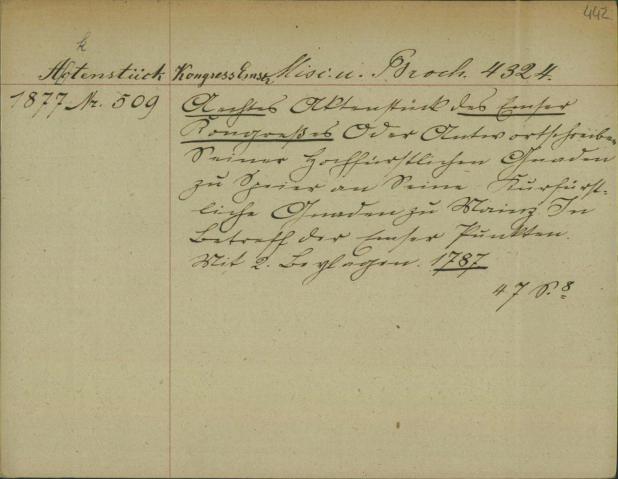 442
k
Actenstück Kongress Emser Misc. u. Broch. 4324.
1877 Nr. 509 Aechtes Aktenstück des Emser
Kongreßes Oder Antwortschreiben
Seiner Hochfürstlichen Gnaden
zu Speier an Seine Kurfürst-
liche Gnaden zu Mainz In
betreff der Emser Punkten.
Mit 2. Beylagen. 1787
47 S. 8